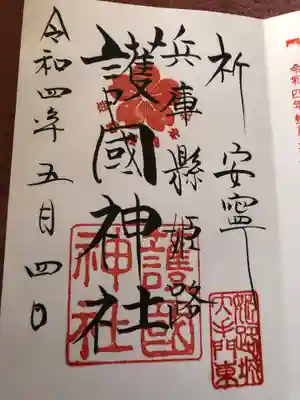 祈 安寧
兵庫縣姫路
護國神社
護國
神社
姫路城
大手門東
令和四年五月四日
令和四年